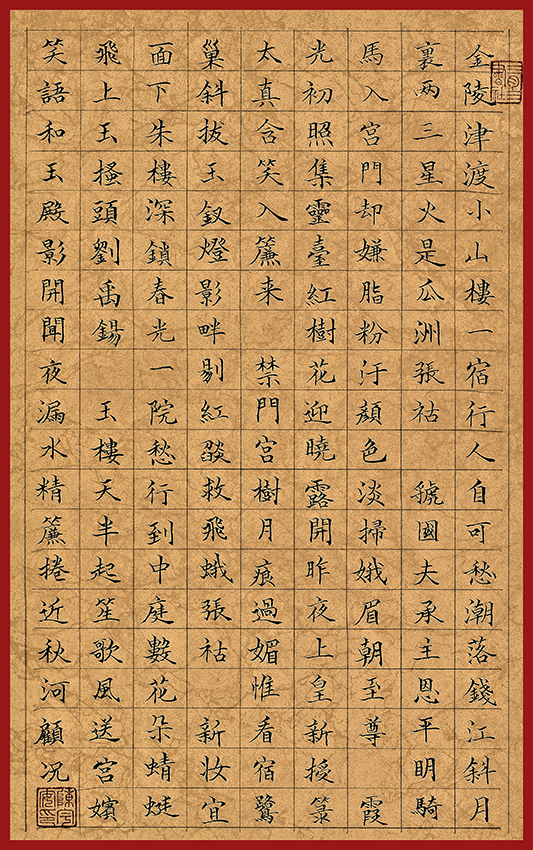 金陵津渡小山樓一宿行人自可愁潮落錢江斜月
裏兩三星火是瓜洲張祜 虢國夫承主恩平明騎
馬入宮門却嫌脂粉汙顏色淡掃娥眉朝至尊 霞
光初照集靈臺紅樹花迎曉露開昨夜上皇新授箓
太真含笑入簾来 禁門宮樹月痕過媚惟看宿鷺
巢斜拔玉釵燈影畔剔紅燄救飛蛾張祜 新妝宜
面下朱樓深鎖春光一院愁行到中庭數花朵蜻蜓
飛上玉搔頭劉禹錫 玉樓天半起笙歌風送宮嬪
笑語和玉殿影開聞夜漏水精簾捲近秋河顧况